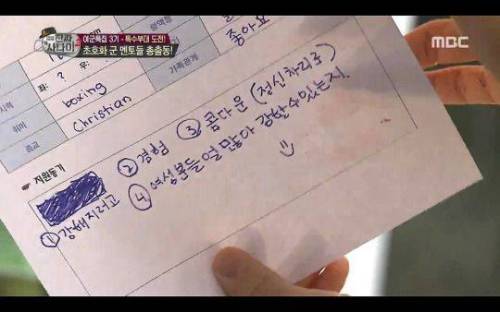 진짜 사나이
여군특집 3기 · 특수부대 도전!
초호화 군 멘토들 총출동!
MBC
좋아요
좌: ?
우:
가족관계
취미 boxing
종교 Christian
지원동기
② 경험 ③ 콤다운 (정신차리고)
① 강해지려고 ④ 여성분들 얼 많아 강할수있는지.